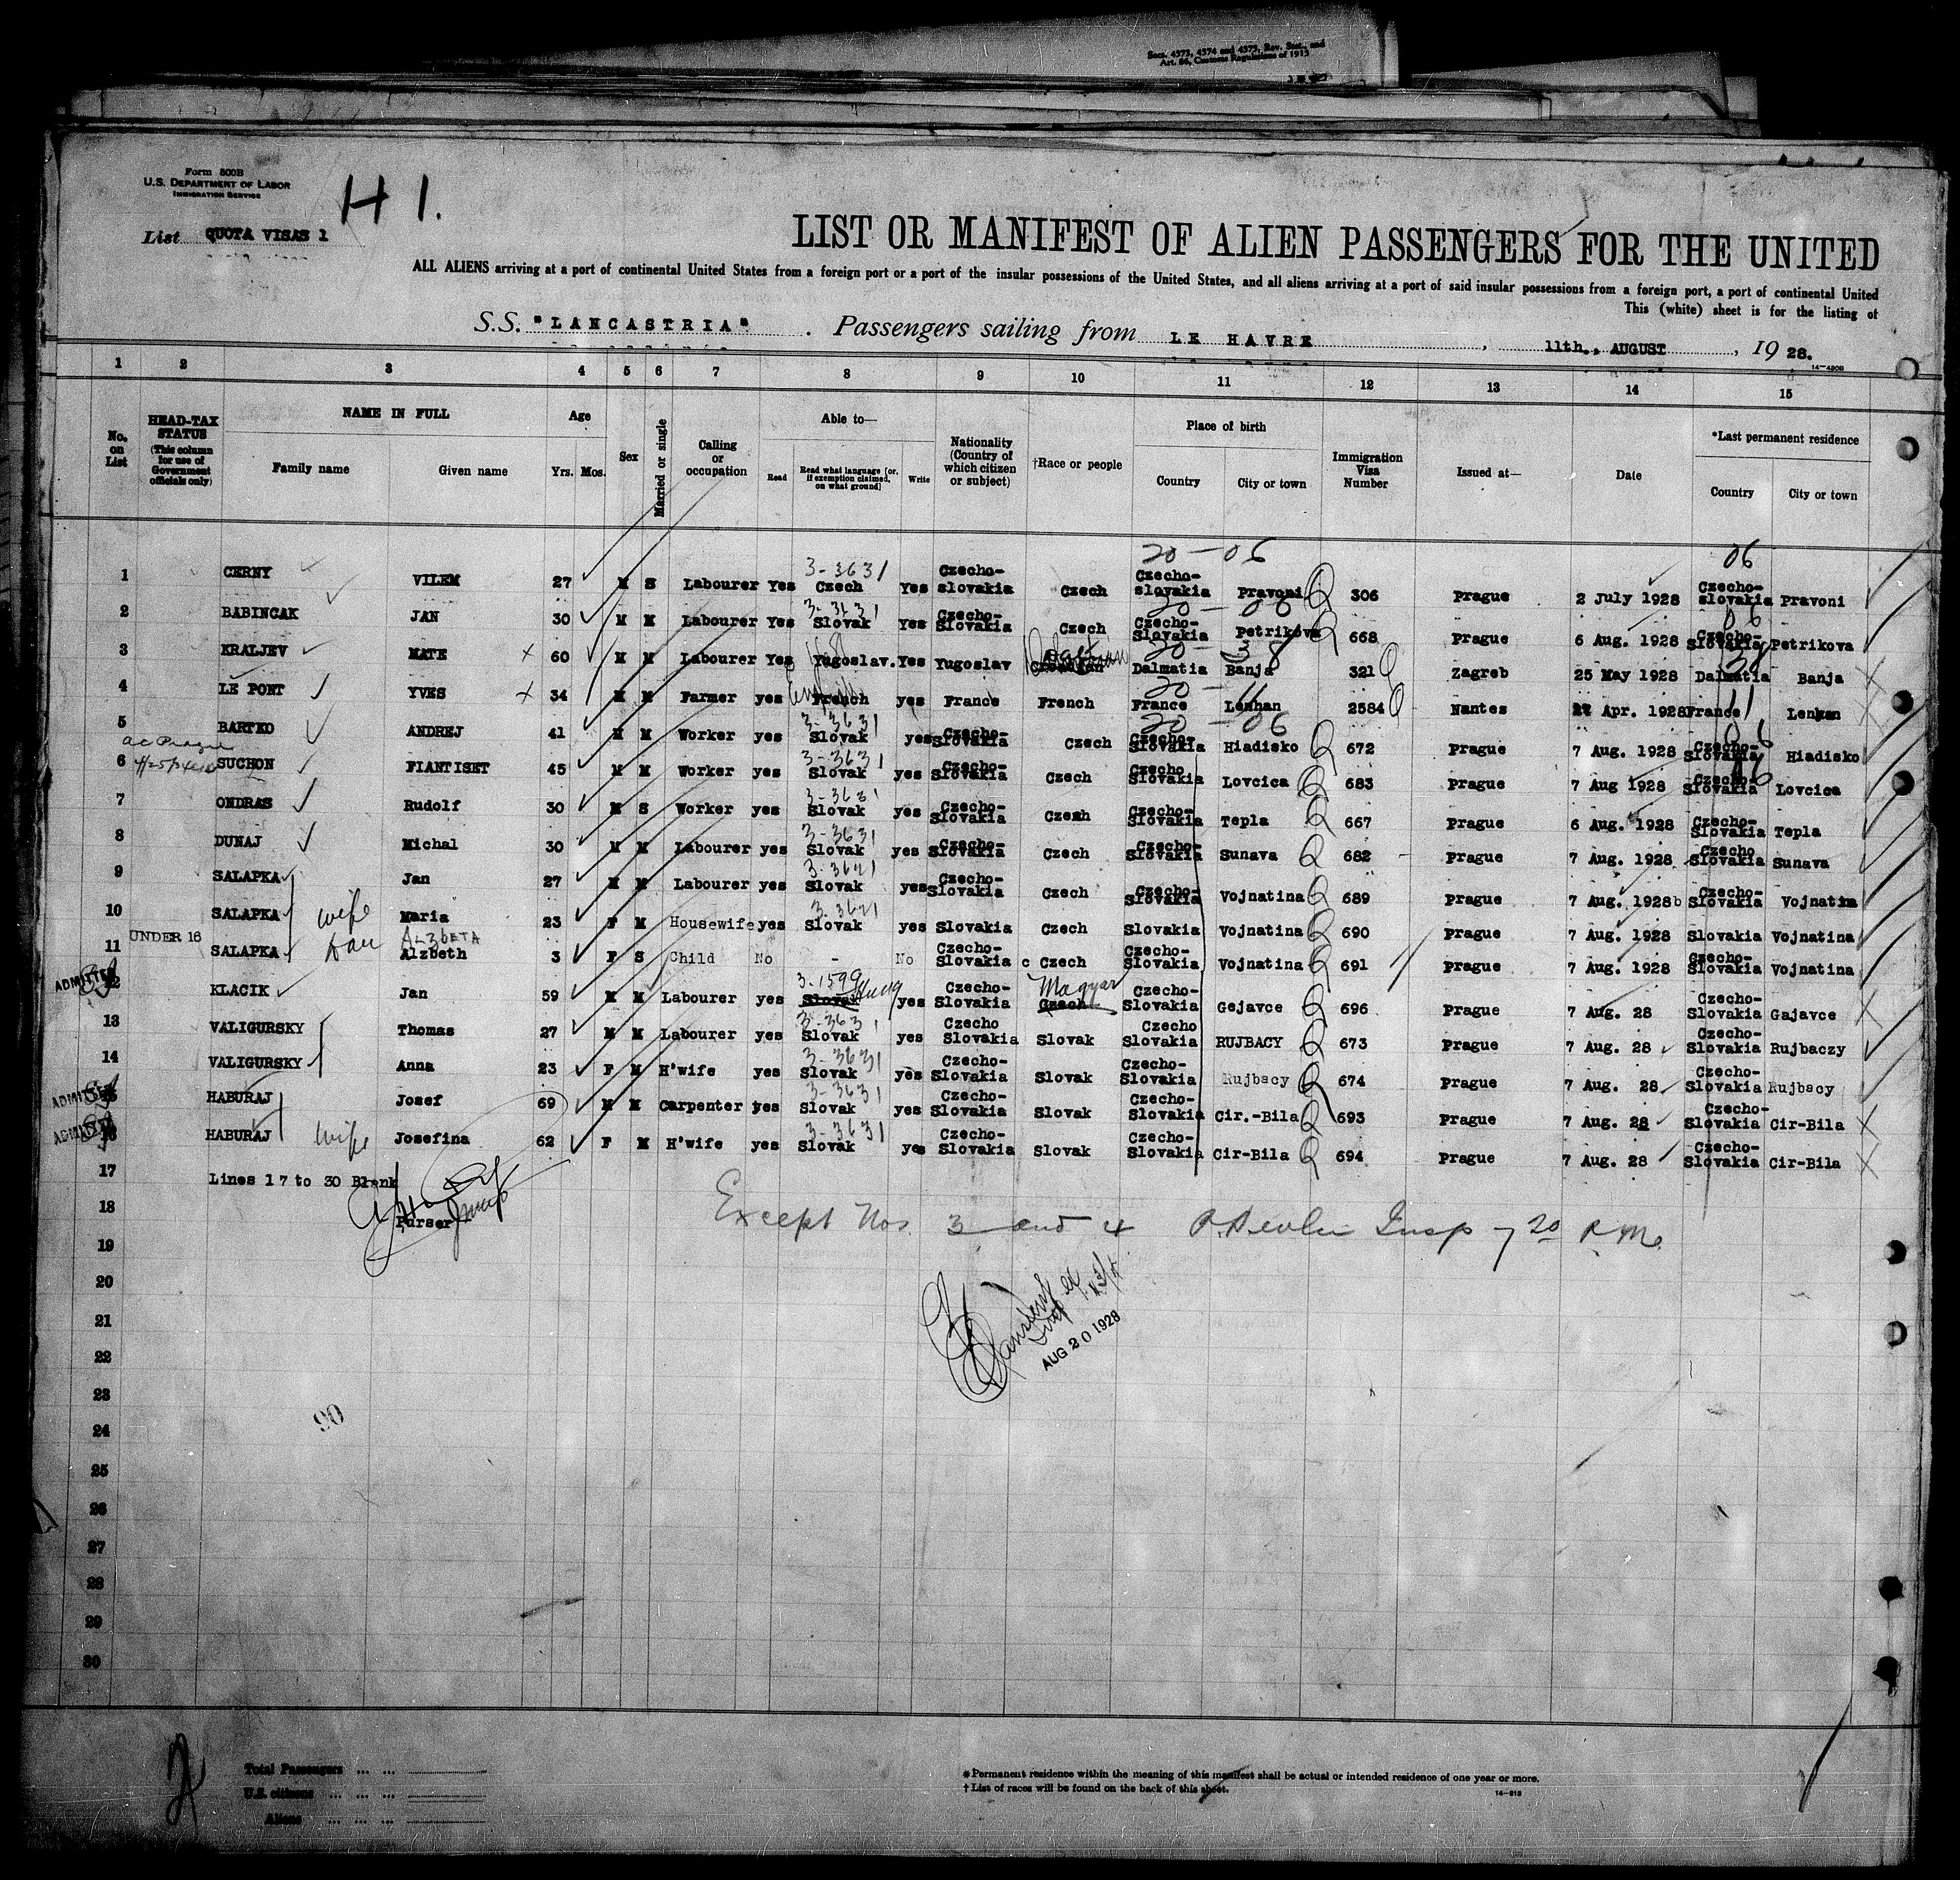 Secs. 4573, 4574 and 4575, Rev. Stat., and
Art. 86, Customs Regulations of 1915
Form 500B
U.S. DEPARTMENT OF LABOR
IMMIGRATION SERVICE
H 1.
List QUOTA VISAS 1
LIST OR MANIFEST OF ALIEN PASSENGERS FOR THE UNITED
ALL ALIENS arriving at a port of continental United States from a foreign port or a port of the insular possessions of the United States, and all aliens arriving at a port of said insular possessions from a foreign port, a port of continental United
This (white) sheet is for the listing of
S.S. "LANCASTRIA" . Passengers sailing from LE HAVRE , 11th., AUGUST , 19 28.
14—430B
1 2 3 4 5 6 7 8 9 10 11 12 13 14 15
No. on List
HEAD-TAX STATUS (This column for use of Government officials only)
NAME IN FULL Family name Given name
Age Yrs. Mos.
Sex
Married or single
Calling or occupation
Able to— Read Read what language [or, if exemption claimed, on what ground] Write
Nationality (Country of which citizen or subject)
†Race or people
Place of birth Country City or town
Immigration Visa Number
Issued at—
Date
*Last permanent residence Country City or town
20 — 06 06
1 CERNY VILEM 27 M S Labourer Yes 3-3631 Czech Yes Czecho-slovakia Czech Czecho-slovakia Pravoni Q 306 Prague 2 July 1928 Czecho-slovakia Pravoni
20 — 06 06
2 BABINCAK JAN 30 M M Labourer Yes 3-3631 Slovak Yes Czecho-Slovakia Czech Czecho-Slovakia Petrikova Q 668 Prague 6 Aug. 1928 Czecho-Slovakia Petrikova
20 — 38 38
3 KRALJEV MATE x 60 M M Labourer Yes Yugoslav. Yes Yugoslav Dalmatia Banja 321 Q Zagreb 25 May 1928 Dalmatia Banja
20 — 11 11
4 LE PONT YVES x 34 M M Farmer yes French yes France French France Lenhan 2584 Q Nantes Apr. 1928 France Lenhan
20 — 06 06
5 BARTKO ANDREJ 41 M M Worker yes 3-3631 Slovak yes Czecho-Slovakia Czech Czecho-Slovakia Hiadisko Q 672 Prague 7 Aug. 1928 Czecho-Slovakia Hiadisko
6 SUCHON FIANTISET 45 M M Worker yes 3-3631 Slovak yes Czecho-Slovakia Czech Czecho Slovakia Lovcica Q 683 Prague 7 Aug 1928 Czecho-Slovakia Lovcica
7 ONDRAS Rudolf 30 M S Worker yes 3-3631 Slovak yes Czecho-Slovakia Czech Czecho-Slovakia Tepla Q 667 Prague 6 Aug. 1928 Czecho-Slovakia Tepla
8 DUNAJ Michal 30 M M Labourer yes 3-3631 Slovak yes Czecho-Slovakia Czech Czecho-Slovakia Sunava Q 682 Prague 7 Aug. 1928 Czecho Slovakia Sunava
9 SALAPKA Jan 27 M M Labourer yes 3-3621 Slovak yes Czecho-Slovakia Czech Czecho-Slovakia Vojnatina Q 689 Prague 7 Aug. 1928b Czecho-Slovakia Vojnatin
10 SALAPKA wife Maria 23 F M Housewife yes 3-3621 Slovak yes Slovakia Czech Slovakia Vojnatina Q 690 Prague 7 Aug. 1928 Slovakia Vojnatina
11 UNDER 16 SALAPKA dau ALZBETA Alzbeth 3 F S Child No - No Czecho-Slovakia c Czech Czecho-Slovakia Vojnatina Q 691 Prague 7 Aug. 1928 Czecho-Slovakia Vojnatina
ADMITTED 12 KLACIK Jan 59 M M Labourer yes 3-1599 Slovak Hung yes Czecho-Slovakia Magyar Czech Czecho-Slovakia Gejavce Q 696 Prague 7 Aug. 28 Czecho-Slovakia Gajavce
13 VALIGURSKY Thomas 27 M M Labourer yes 3-3631 Slovak yes Czecho Slovakia Slovak Czecho Slovakia RUJBACY Q 673 Prague 7 Aug. 28 Czecho-Slovakia Rujbaczy
14 VALIGURSKY Anna 23 F M H'wife yes 3-3631 Slovak yes Czecho-Slovakia Slovak Czecho-Slovakia Rujbacy Q 674 Prague 7 Aug. 28 Czecho-Slovakia Rujbacy
ADMITTED 15 HABURAJ Josef 69 M M Carpenter yes 3-3631 Slovak yes Czecho-Slovakia Slovak Czecho-Slovakia Cir.-Bila Q 693 Prague 7 Aug. 28 Czecho-Slovakia Cir-Bila
ADMITTED 16 HABURAJ wife Josefina 62 F M H'wife yes 3-3631 Slovak yes Czecho-Slovakia Slovak Czecho-Slovakia Cir-Bila Q 694 Prague 7 Aug. 28 Czecho-Slovakia Cir-Bila
17 Lines 17 to 30 Blank
18 Purser Except Nos. 3 and 4 Insp 7 20 P.M.
19
20
21
AUG 20 1928
22
23
24 90
25
26
27
28
29
30
Total Passengers ... ...
U.S. citizens ... ... ...
Aliens ... ... ...
* Permanent residence within the meaning of this manifest shall be actual or intended residence of one year or more.
† List of races will be found on the back of this sheet.
14—813